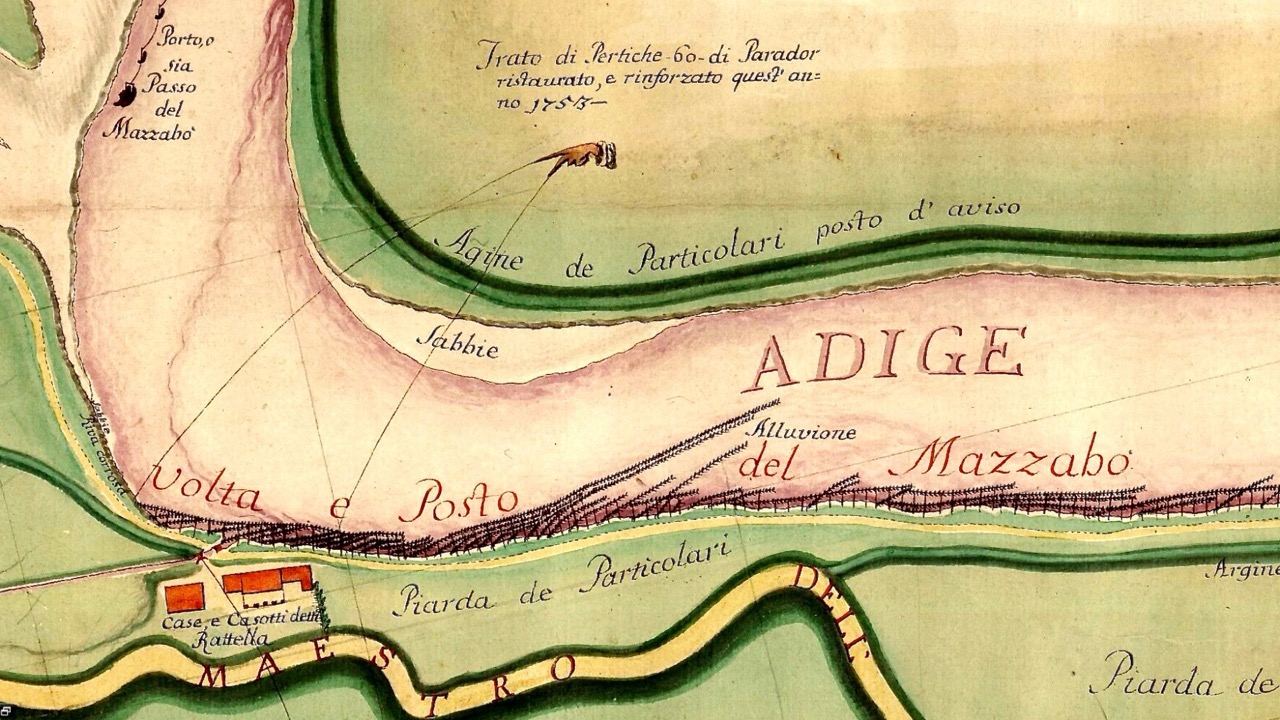 Porto, o
sia
Passo
del
Mazzabò
Trato di Pertiche-60-di Parador
ristaurato, e rinforzato quest' an=
no 1753—
Agine de Particolari posto d' aviso
Sabbie
ADIGE
Alluvione
Volta e Posto del Mazzabò
Sabbie
Riva corrosa
Piarda de Particolari
Case, e Casotti detti
Rattella
MAESTRO
DELL'
Argine
Piarda de